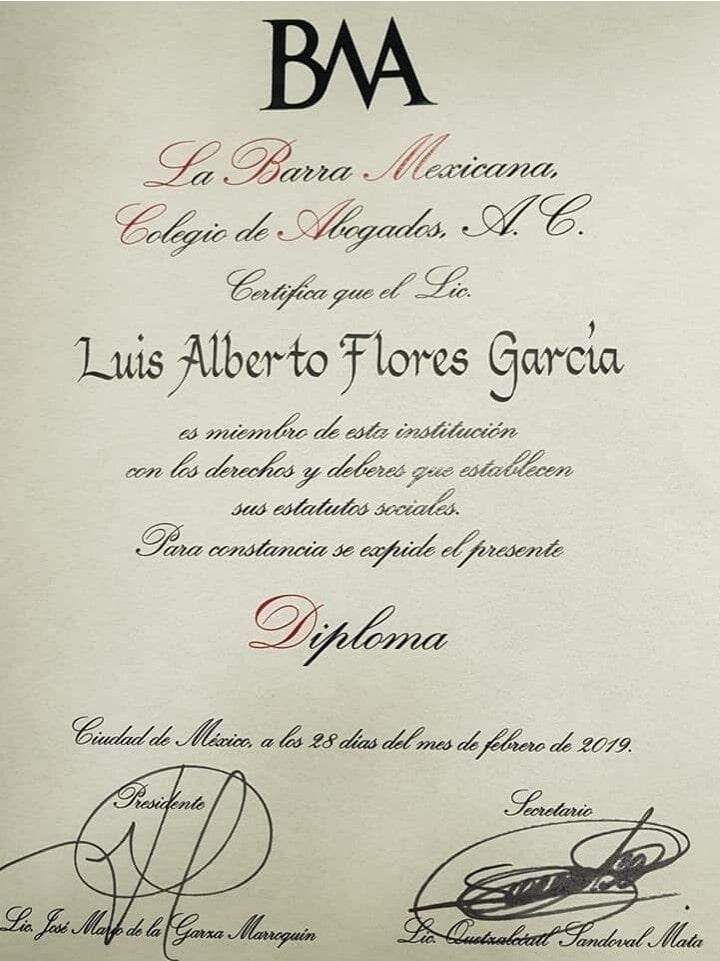 BMA
La Barra Mexicana,
Colegio de Abogados, A. C.
Certifica que el Lic.
Luis Alberto Flores García
es miembro de esta institución
con los derechos y deberes que establecen
sus estatutos sociales.
Para constancia se expide el presente
Diploma
Ciudad de México, a los 28 días del mes de febrero de 2019.
Presidente
Secretario
Lic. José Mario de la Garza Marroquín
Lic. Quetzalcóatl Sandoval Mata